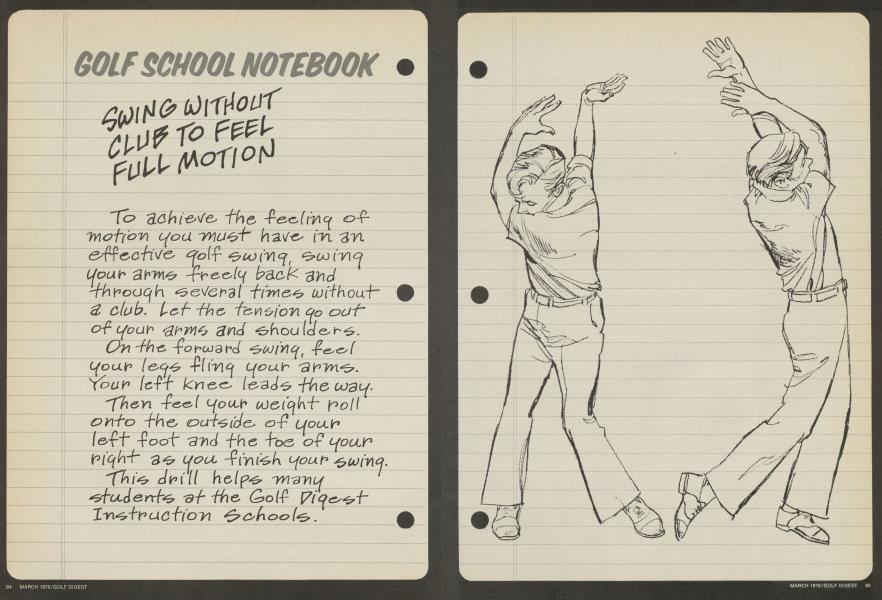 GOLF SCHOOL NOTEBOOK
SWING WITHOUT
CLUB TO FEEL
FULL MOTION
To achieve the feeling of
motion you must have in an
effective golf swing, swing
your arms freely back and
through several times without
a club. Let the tension go out
of your arms and shoulders.
On the forward swing, feel
your legs fling your arms.
Your left knee leads the way.
Then feel your weight roll
onto the outside of your
left foot and the toe of your
right as you finish your swing.
This drill helps many
students at the Golf Digest
Instruction Schools.
94 MARCH 1978/GOLF DIGEST
MARCH 1978/GOLF DIGEST 95